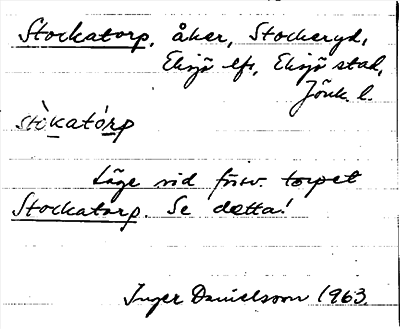 Stockatorp, åker, Stockeryd,
Eksjö lfs, Eksjö stad,
Jönk. l.
stòkatórp
Läge vid försv. torpet
Stockatorp. Se detta!
Inger Danielsson 1963